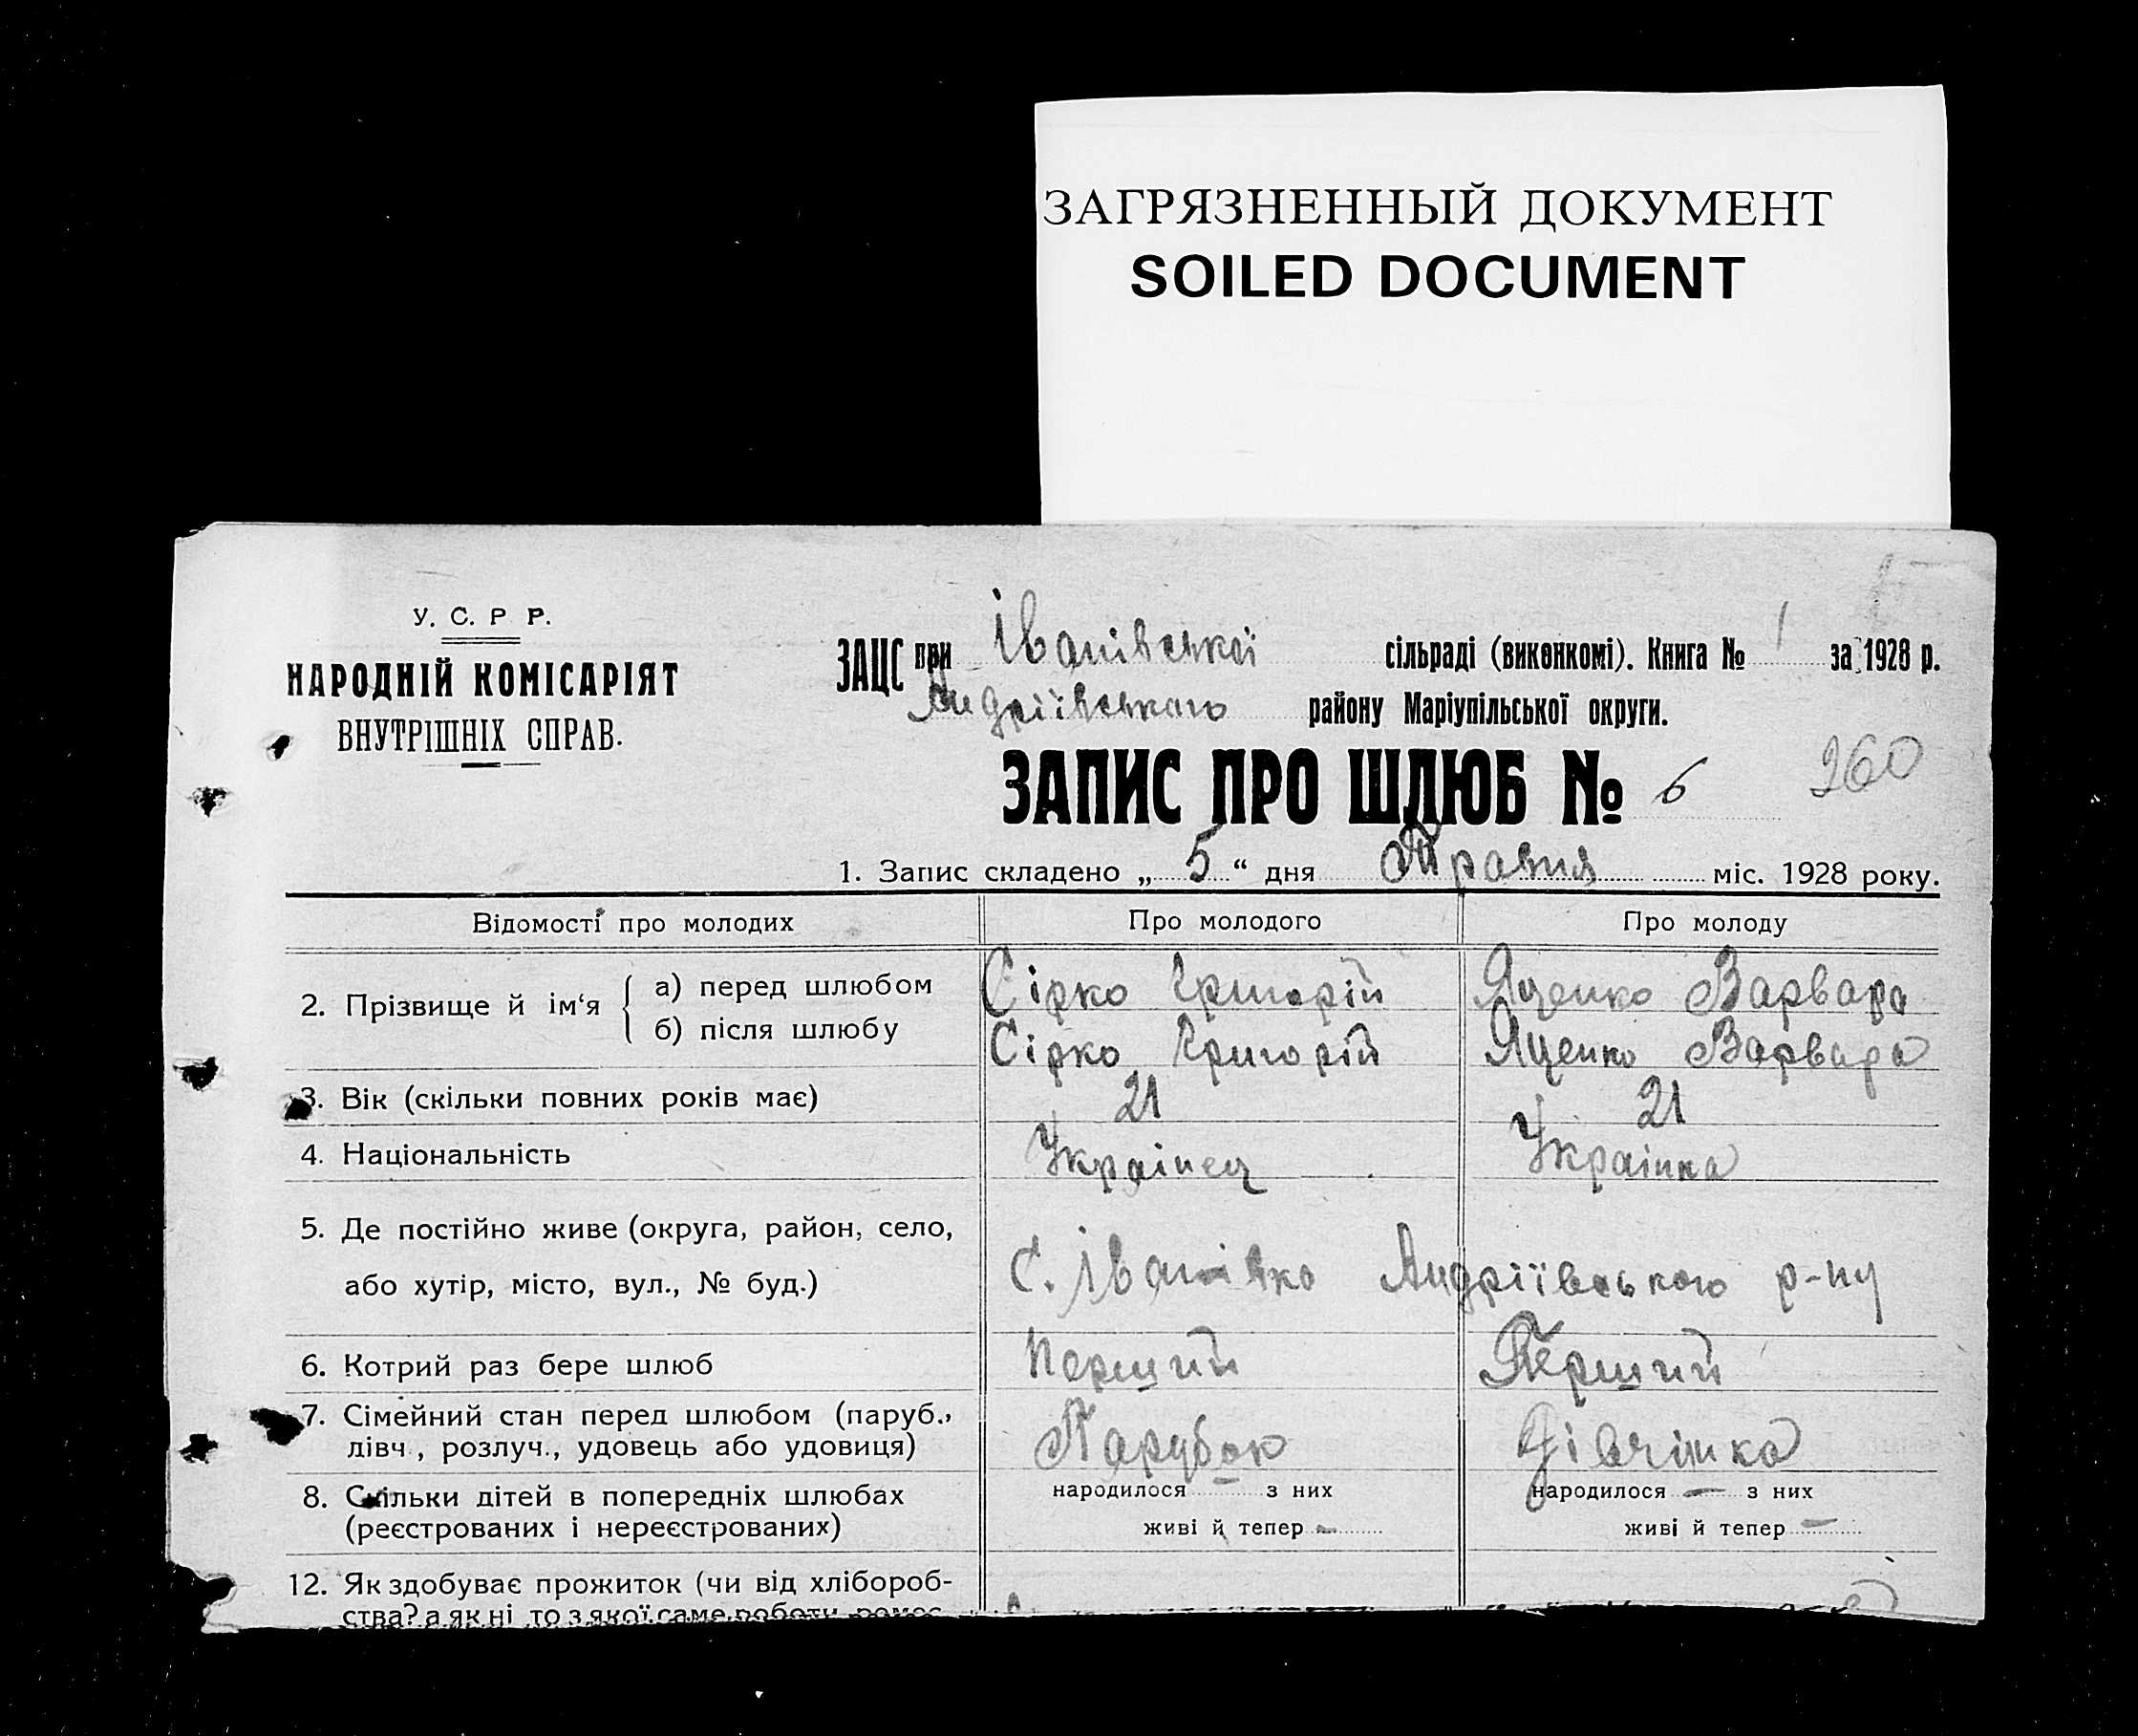 ЗАГРЯЗНЕННЫЙ ДОКУМЕНТ
SOILED DOCUMENT
У. С. Р Р.
НАРОДНІЙ КОМІСАРІЯТ
ВНУТРІШНІХ СПРАВ.
ЗАЦС при Іванівської сільраді (виконкомі). Книга № 1 за 1928 р.
Андріївського району Маріупільської округи.
ЗАПИС ПРО ШЛЮБ № 6
260
1. Запис складено „ 5 “ дня Травня міс. 1928 року.
Відомості про молодих Про молодого Про молоду
2. Прізвище й ім‘я { а) перед шлюбом Сірко Григорій Яценко Варвара
б) після шлюбу Сірко Григорій Яценко Варвара
3. Вік (скільки повних років має) 21 21
4. Національність Украінец Украінка
5. Де постійно живе (округа, район, село,
або хутір, місто, вул., № буд.) С. Іванівка Андріївського р-ну
6. Котрий раз бере шлюб Перший Перший
7. Сімейний стан перед шлюбом (паруб.,
дівч., розлуч., удовець або удовиця) Парубок Дівчінка
8. Скільки дітей в попередніх шлюбах народилося з них народилося — з них
(реєстрованих і нереєстрованих) живі й тепер — живі й тепер —
12. Як здобуває прожиток (чи від хлібороб-
ства? а як ні, то з якої саме роботи,